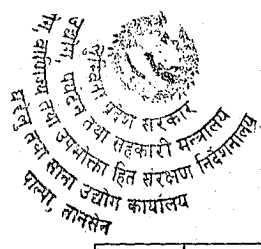 लुम्बिनी प्रदेश सरकार
उद्योग, पर्यटन तथा सहकारी मन्त्रालय
वाणिज्य तथा उपभोक्ता हित संरक्षण निर्देशनालय
घरेलु तथा साना उद्योग कार्यालय
पाल्पा, तानसेन